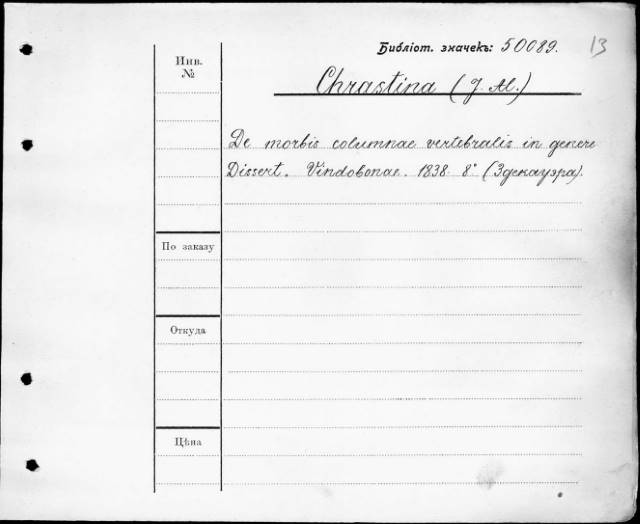 Библіот. значекъ: 50089. 13
Инв.
№
Chrastina (J. Al.)
De morbis columnae vertebralis in genere
Dissert. Vindobonae. 1838. 8° (Здекауэра).
По заказу
Откуда
Цѣна